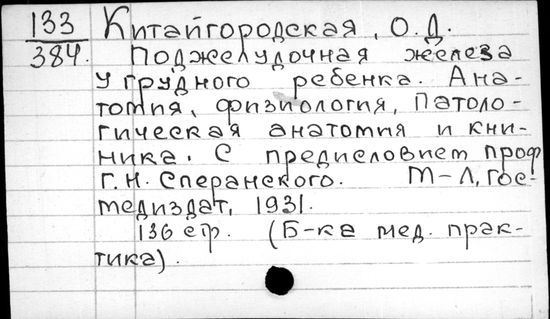 133 Китайгородская, О.Д.
384. Поджелудочная железа
у грудного ребенка. Ана-
томия, физиология, патоло-
гическая анатомия и кли-
ника. С предисловием проф
Г.Н. Сперанского. М-Л, Гос-
медиздат, 1931.
136 стр. (Б-ка мед. прак-
тика).